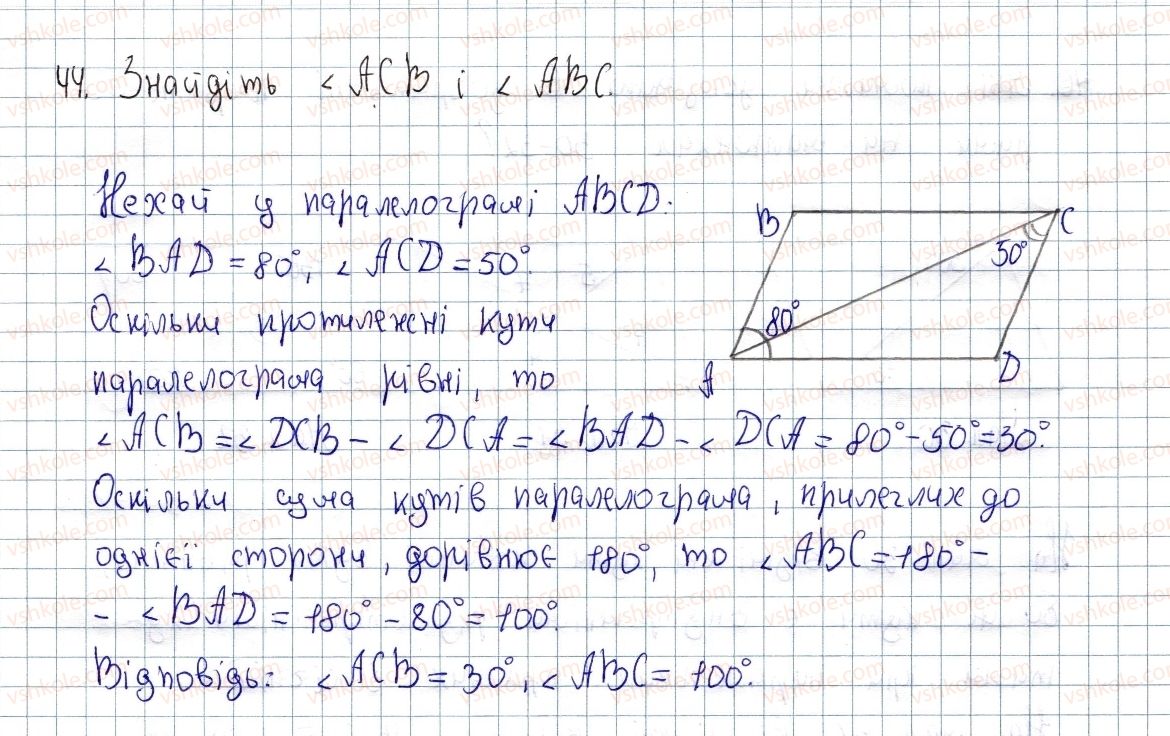 44. Знайдіть < ACB і < ABC.
Нехай у паралелограмі ABCD:
< BAD = 80°, < ACD = 50°.
Оскільки протилежні кути
паралелограма рівні, то
< ACB = < DCB - < DCA = < BAD - < DCA = 80° - 50° = 30°.
Оскільки сума кутів паралелограма, прилеглих до
однієї сторони, дорівнює 180°, то < ABC = 180° -
- < BAD = 180° - 80° = 100°.
Відповідь: < ACB = 30°, < ABC = 100°.
B
C
50°
80°
A
D
vshkole.com